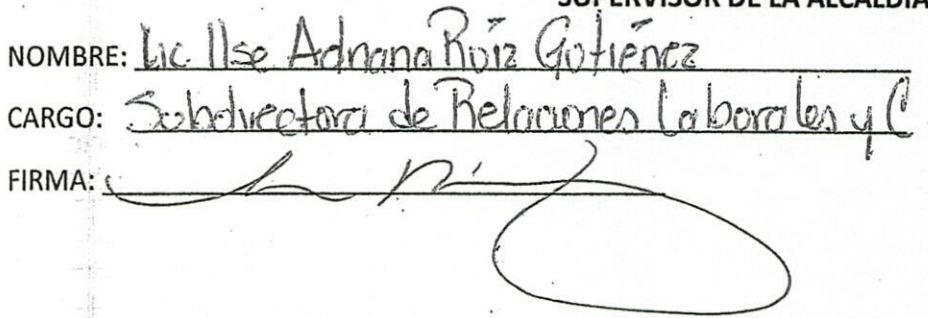 SUPERVISOR DE LA ALCALDIA
NOMBRE: Lic. Ilse Adriana Ruiz Gutiérrez
CARGO: Subdirectora de Relaciones Laborales y C
FIRMA: